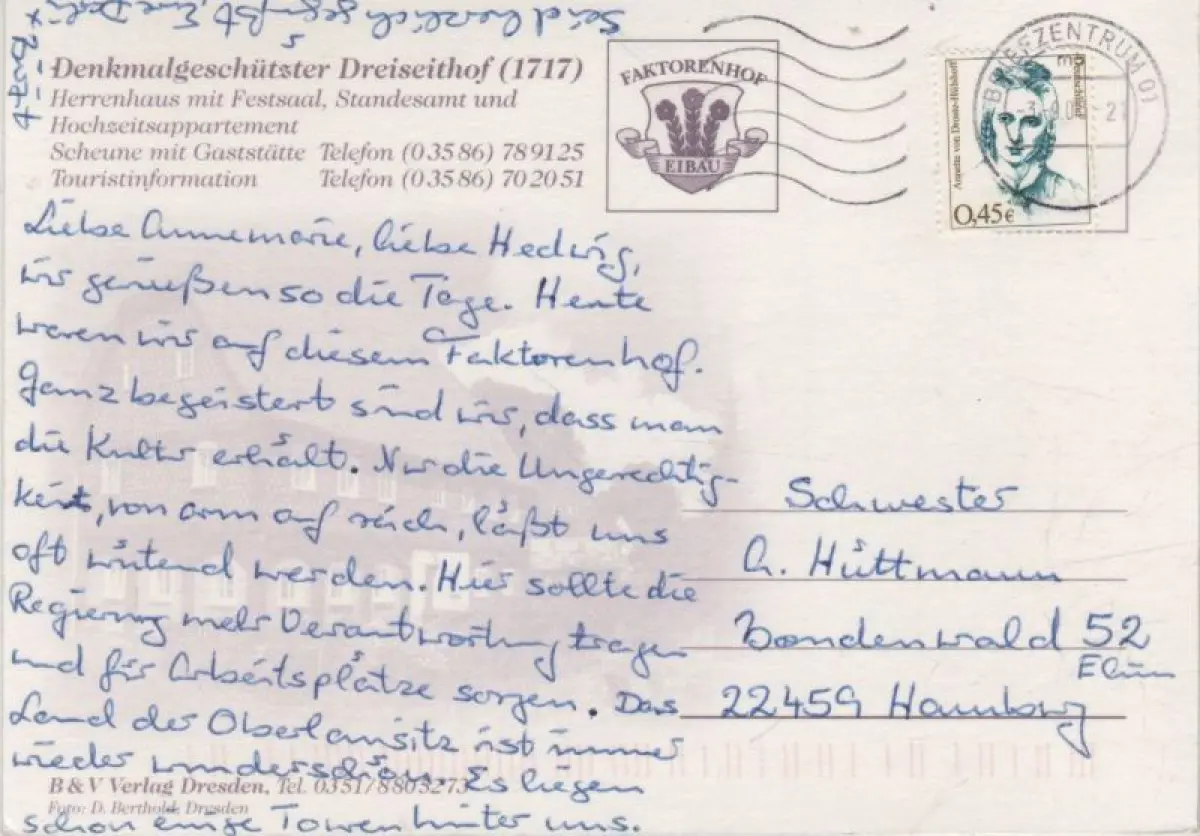 Denkmalgeschützter Dreiseithof (1717)
Herrenhaus mit Festsaal, Standesamt und
Hochzeitsappartement
Scheune mit Gaststätte Telefon (0 35 86) 78 91 25
Touristinformation Telefon (0 35 86) 70 20 51
FAKTORENHOF
EIBAU
BRIEFZENTRUM 01
Deutschland
Annette von Droste-Hülshoff
0,45€
Liebe Annemarie, liebe Hedwig,
wir genießen so die Tage. Heute
waren wir auf diesem Faktorenhof.
Ganz begeistert sind wir, dass man
die Kultur erhält. Nur die Ungerechtig-
keit, von arm auf reich, läßt uns
oft wütend werden. Hier sollte die
Regierung mehr Verantwortung tragen
und für Arbeitsplätze sorgen. Das
Land der Oberlausitz ist immer
wieder wunderschön. Es liegen
schon einige Touren hinter uns.
Seid herzlich gegrüßt, Eure
Schwester
A. Hüttmann
Bondenwald 52
22459 Hamburg
B & V Verlag Dresden, Tel. 03 51/8 80 32 73
Foto: D. Berthold, Dresden